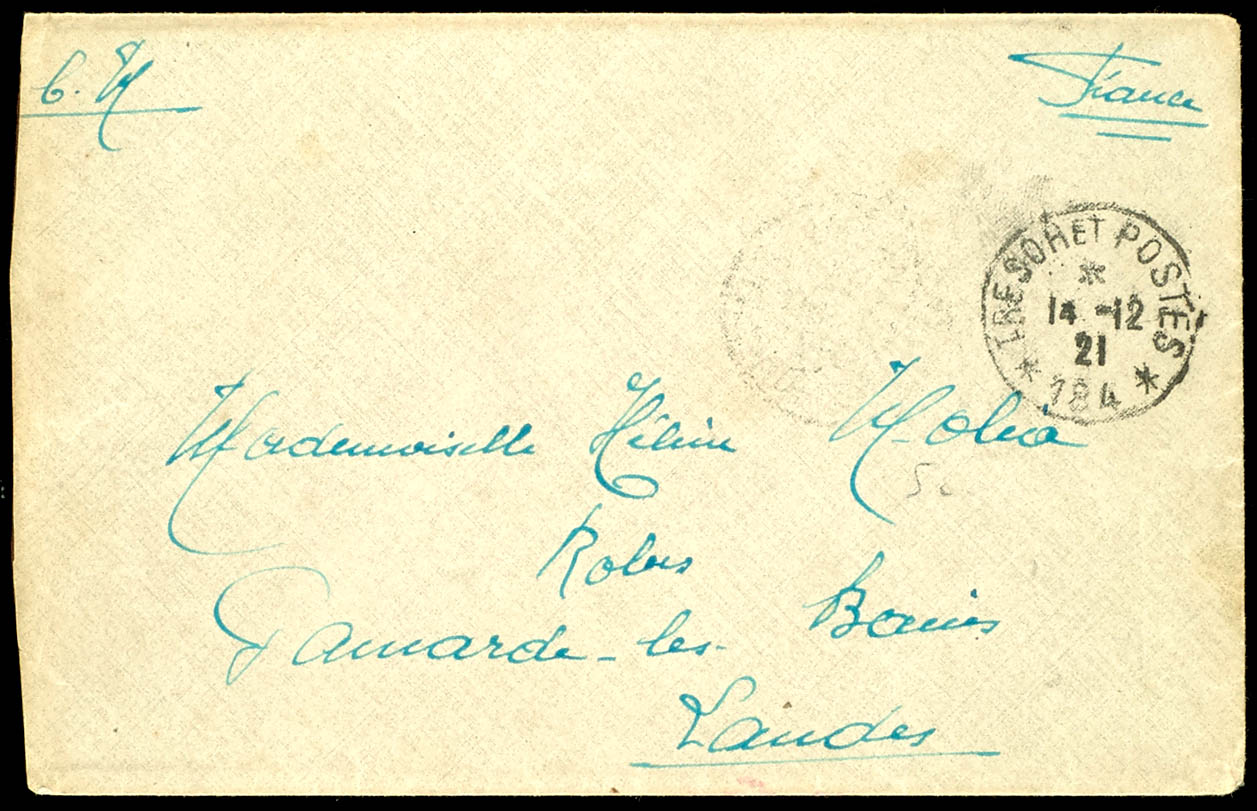 C. M
France
TRESOR ET POSTES
*
14 -12
21
* 184 *
Mademoiselle Hélène Molia
Robes
Gamarde-les-Bains
Landes